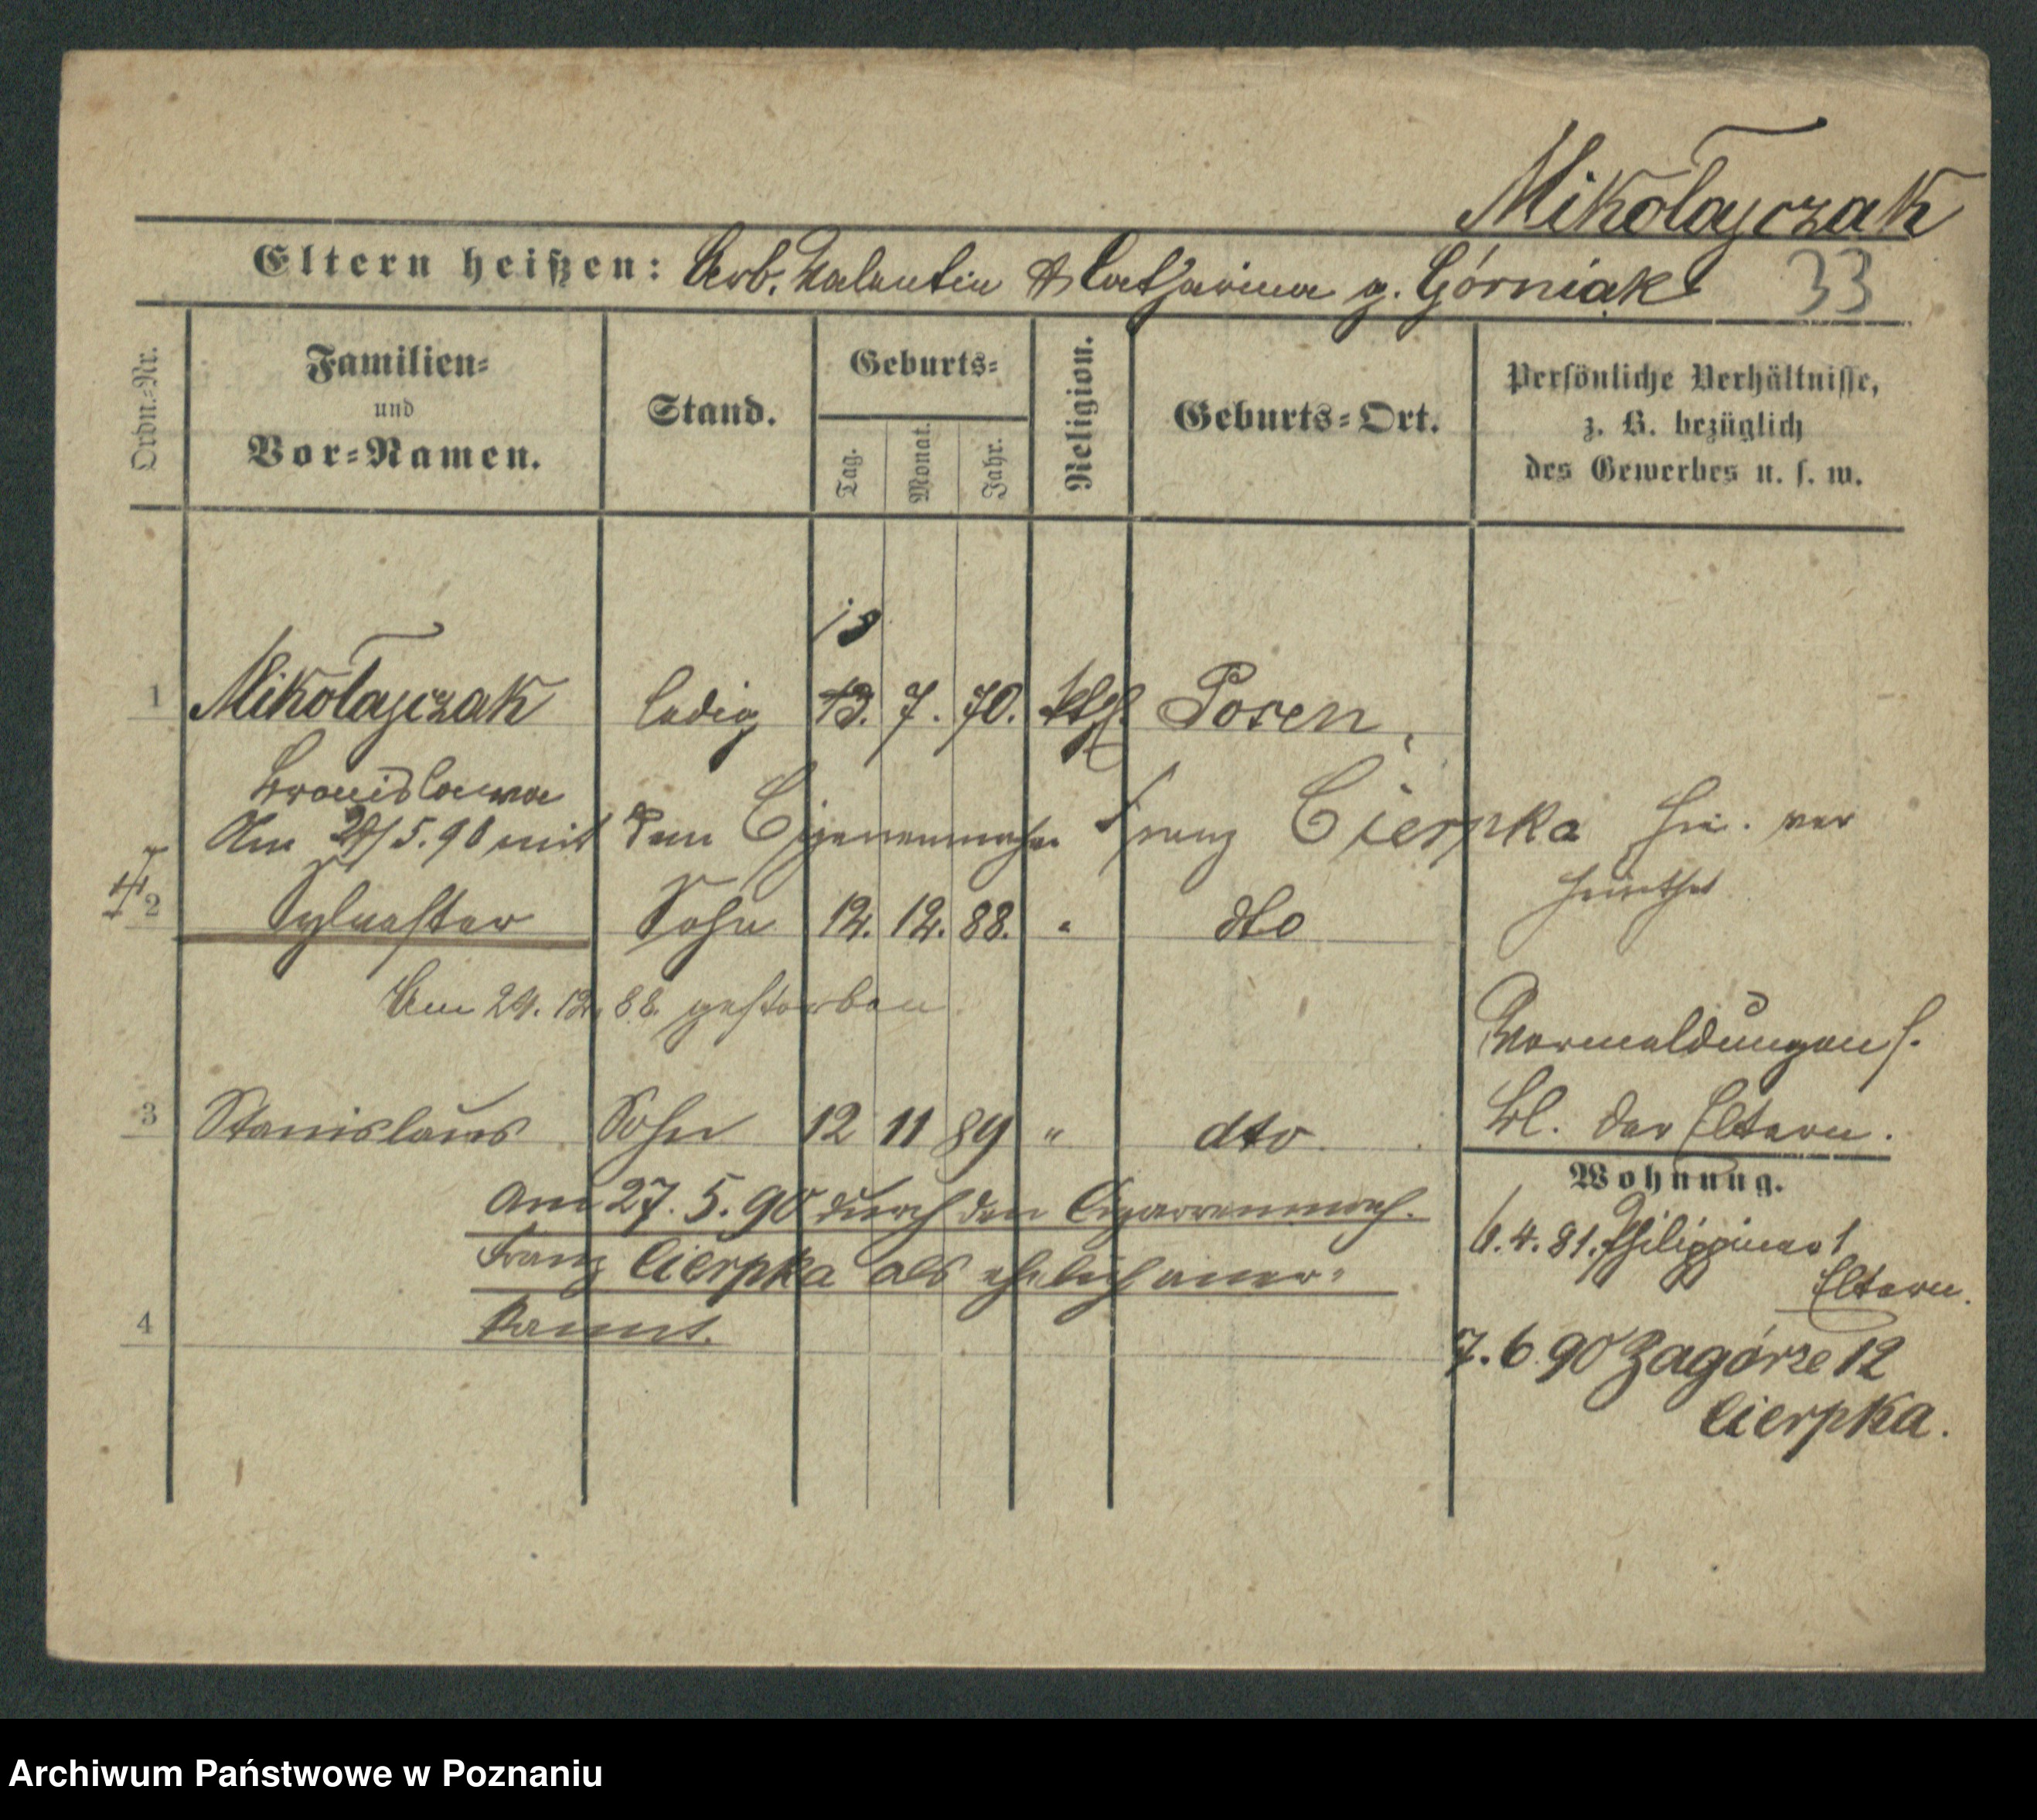 Mikołajczak
Eltern heißen: Arb. Valentin & Catharina g. Górniak 33
Ordn.-Nr.
Familien-
und
Vor-Namen.
Stand.
Geburts-
Tag.
Monat.
Jahr.
Religion.
Geburts-Ort.
Persönliche Verhältnisse,
z. B. bezüglich
des Gewerbes u. s. w.
13
1 Mikołajczak ledig 13. 7. 70. kth. Posen,
Bronislawa
Am 27/5.90 mit dem Cigarrenmacher Franz Cierpka hie. ver
heirathet
2 Sylvester Sohn 12. 12. 88. " dto
Am 24. 12. 88. gestorben
Vormeldungen s.
Bl. der Eltern.
3 Stanislaus Sohn 12 11 89 " dto
Am 27. 5. 90 durch den Cigarrenmach.
Franz Cierpka als ehelich aner-
kannt.
4
Wohnung.
6. 4. 81. Philippinas 1
Eltern.
7. 6 90 Zagórze 12
Cierpka.
Archiwum Państwowe w Poznaniu